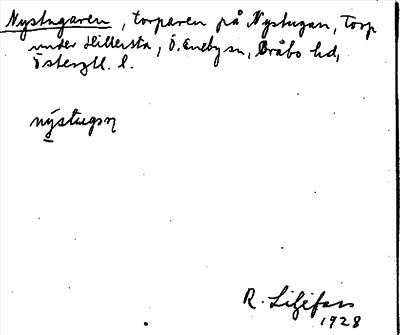 Nystugaren, torparen på Nystugan, torp
under Hillersta, Ö. Eneby sn, Bråbo hd,
Östergtl. l.
nýstugaɳ
R. Liljefors
1928